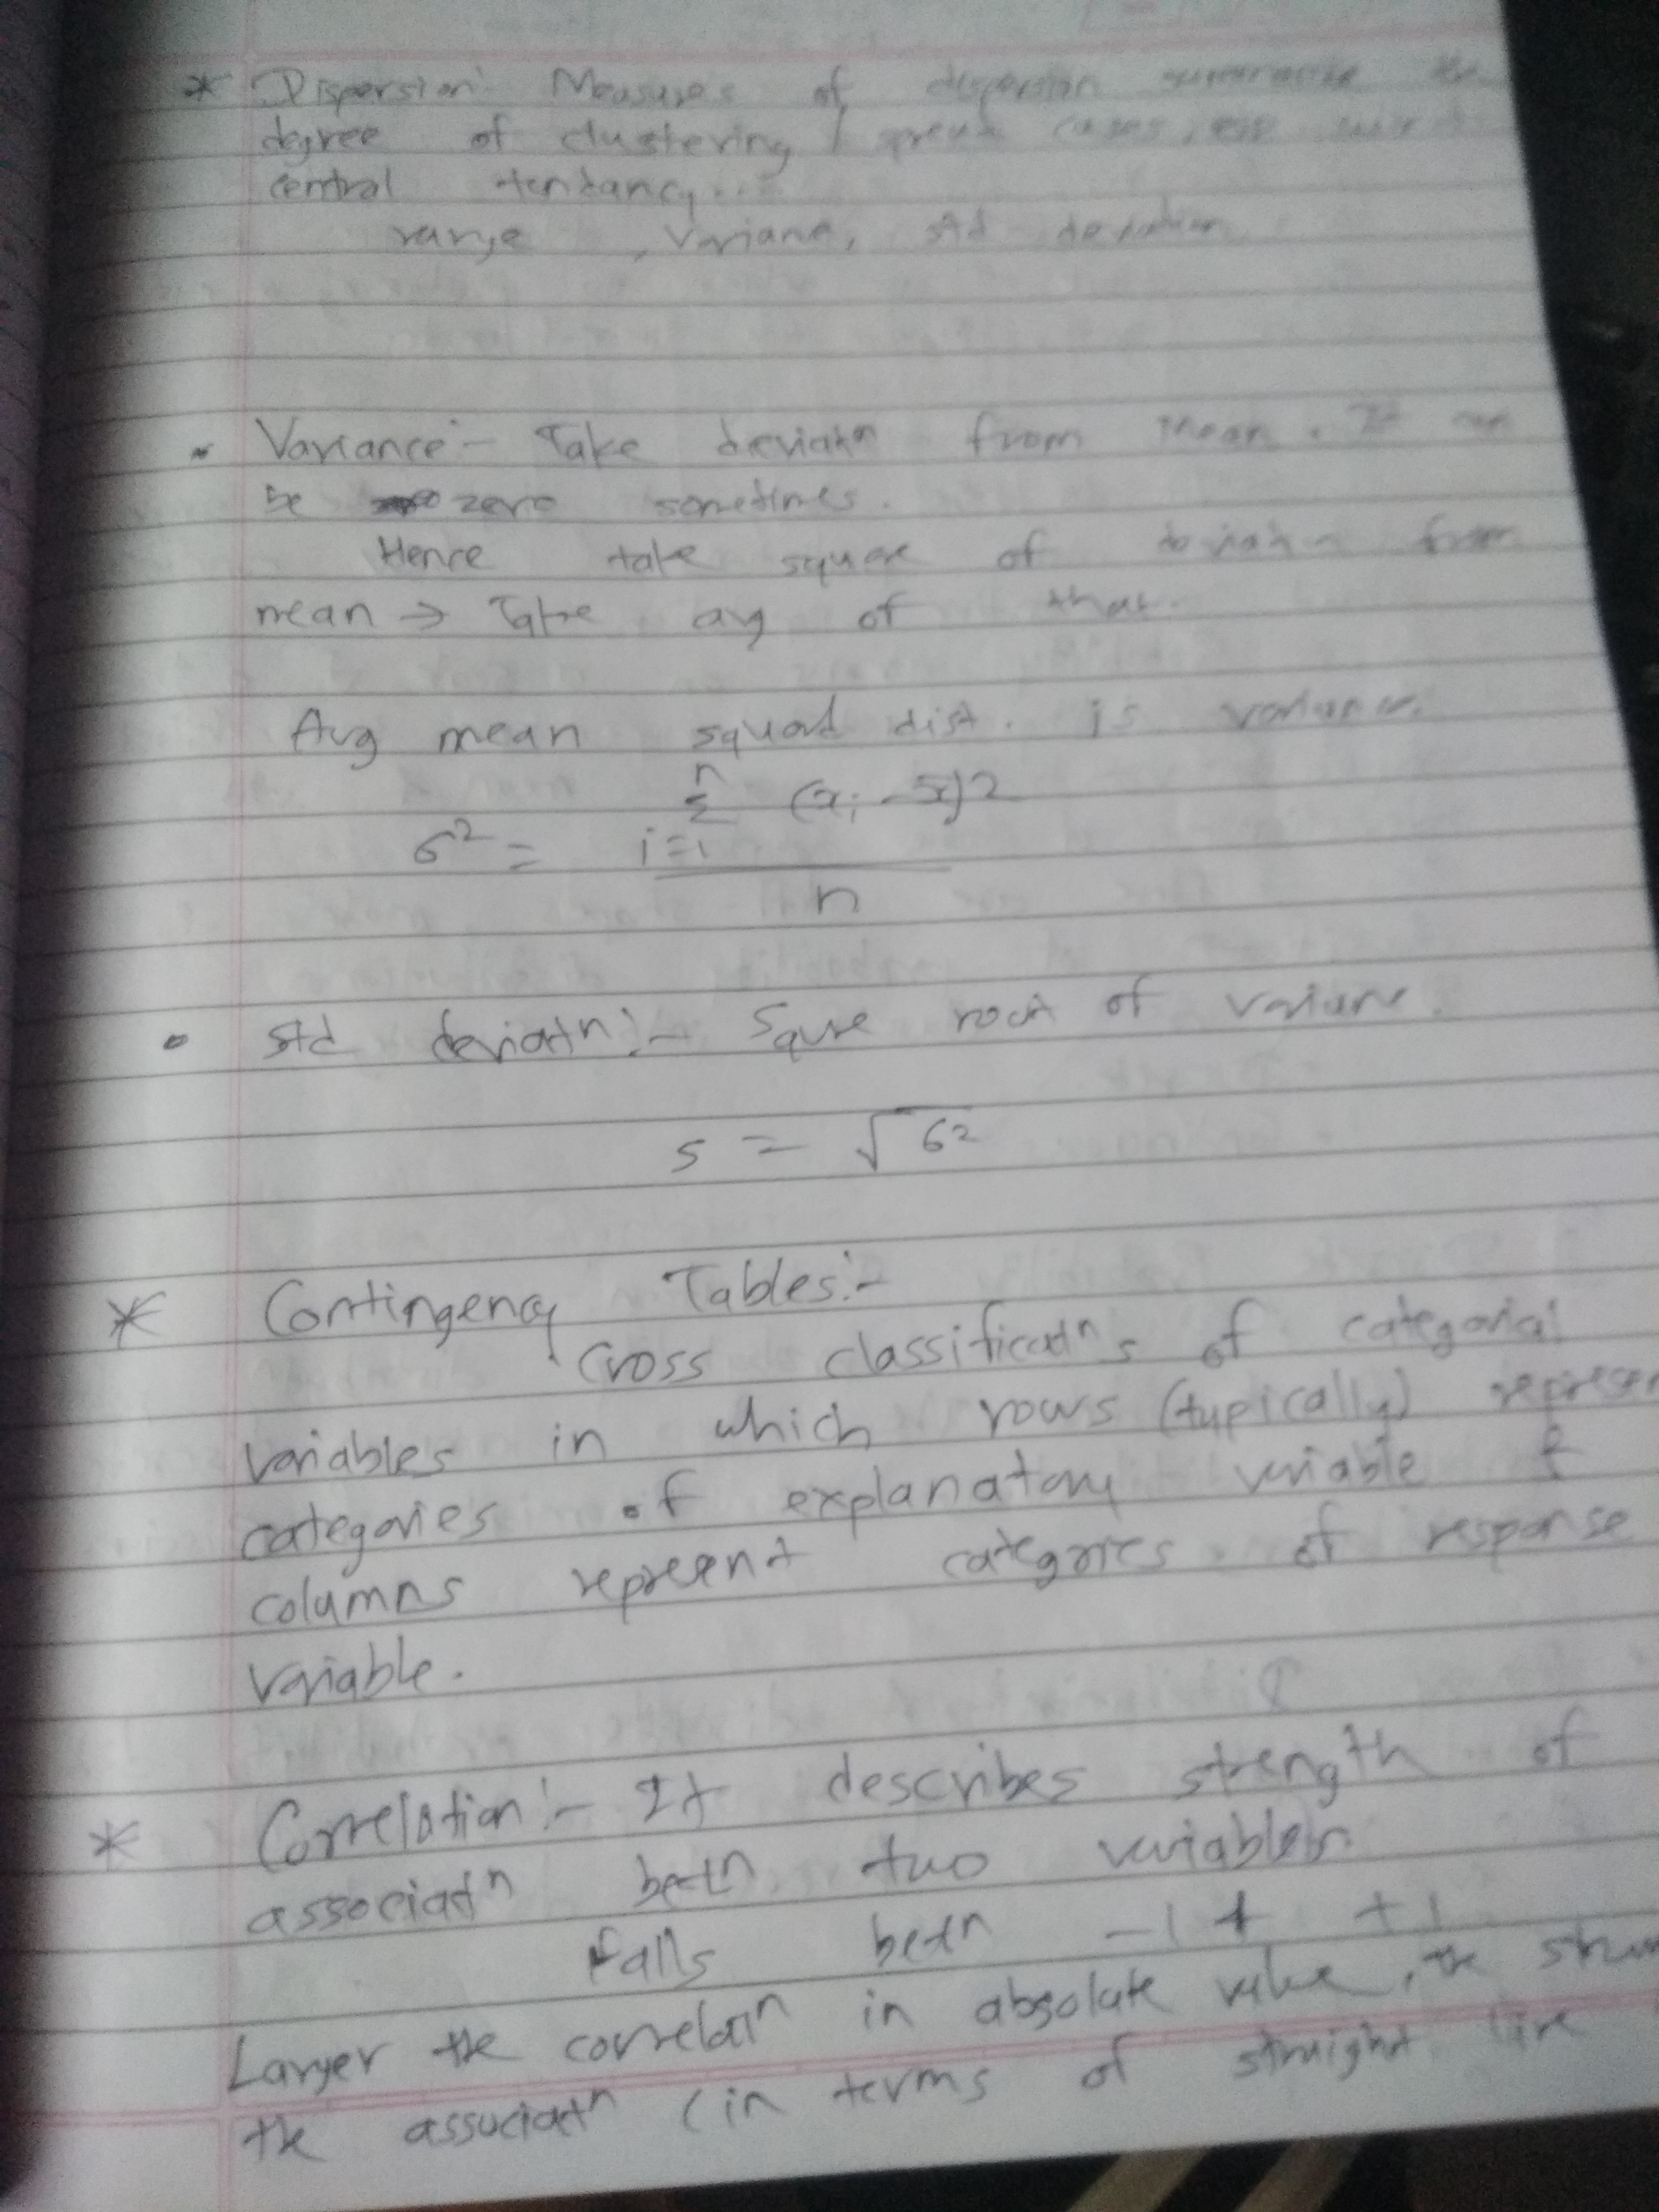 * Dispersion:- Measures of dispersion summarize the
degree of clustering / spread cases,
central tendancy...
range , Variane, std deviation
• Variance:- Take deviatn from mean. It can
be zero sometimes.
Hence take square of deviatn from
mean → Take avg of that.
Avg mean squard dist. is variance.
n
Σ (xi - x̄)2
σ² = i=1
n
• Std deviatn:- Squre root of variane.
s = √σ2
* Contingency Tables:-
Cross classificatns of categorial
variables in which rows (typically) represen
categories of explanatory variable &
columns represent categories of response
variable.
* Correlation:- It describes strength of
associatn betn two variables.
Falls betn -1 & +1
Larger the correlatn in absolute value, the
the associatn (in terms of straight line